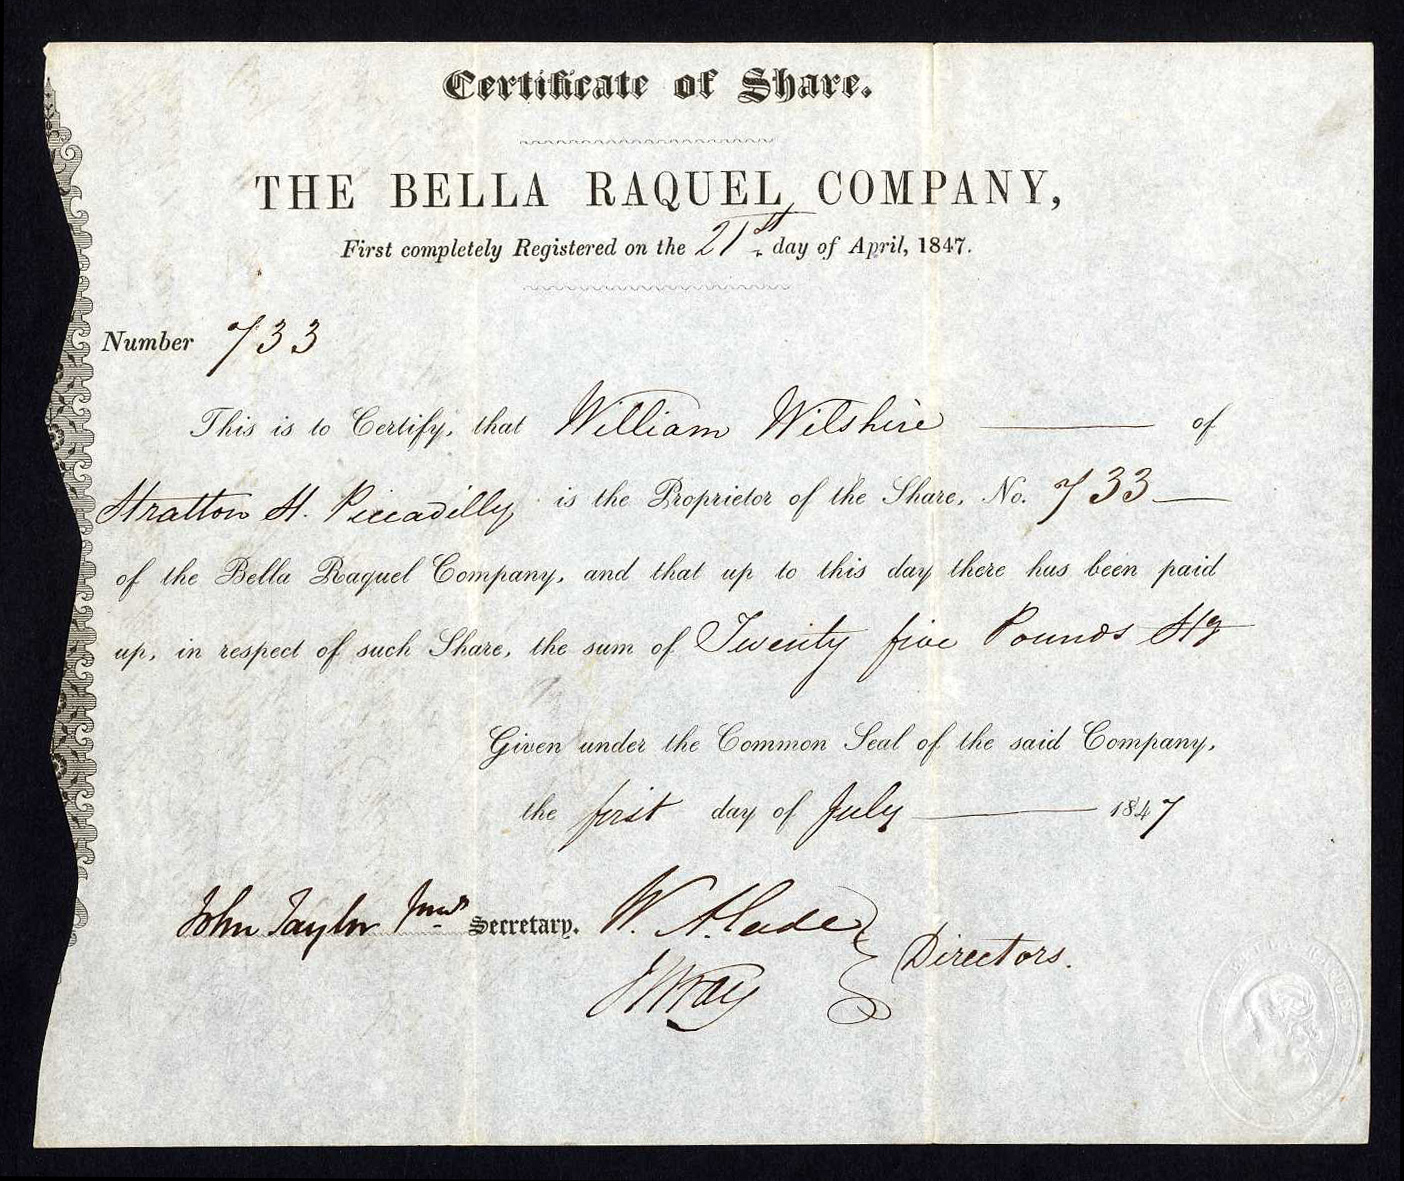 Certificate of Share.
THE BELLA RAQUEL COMPANY,
First completely Registered on the 21st day of April, 1847.
Number 733
This is to Certify, that William Wilshire of
Stratton St. Piccadilly is the Proprietor of the Share, No. 733
of the Bella Raquel Company, and that up to this day there has been paid
up, in respect of such Share, the sum of Twenty five Pounds Stg
Given under the Common Seal of the said Company,
the first day of July 1847
John Taylor Junr Secretary. W.
Directors.